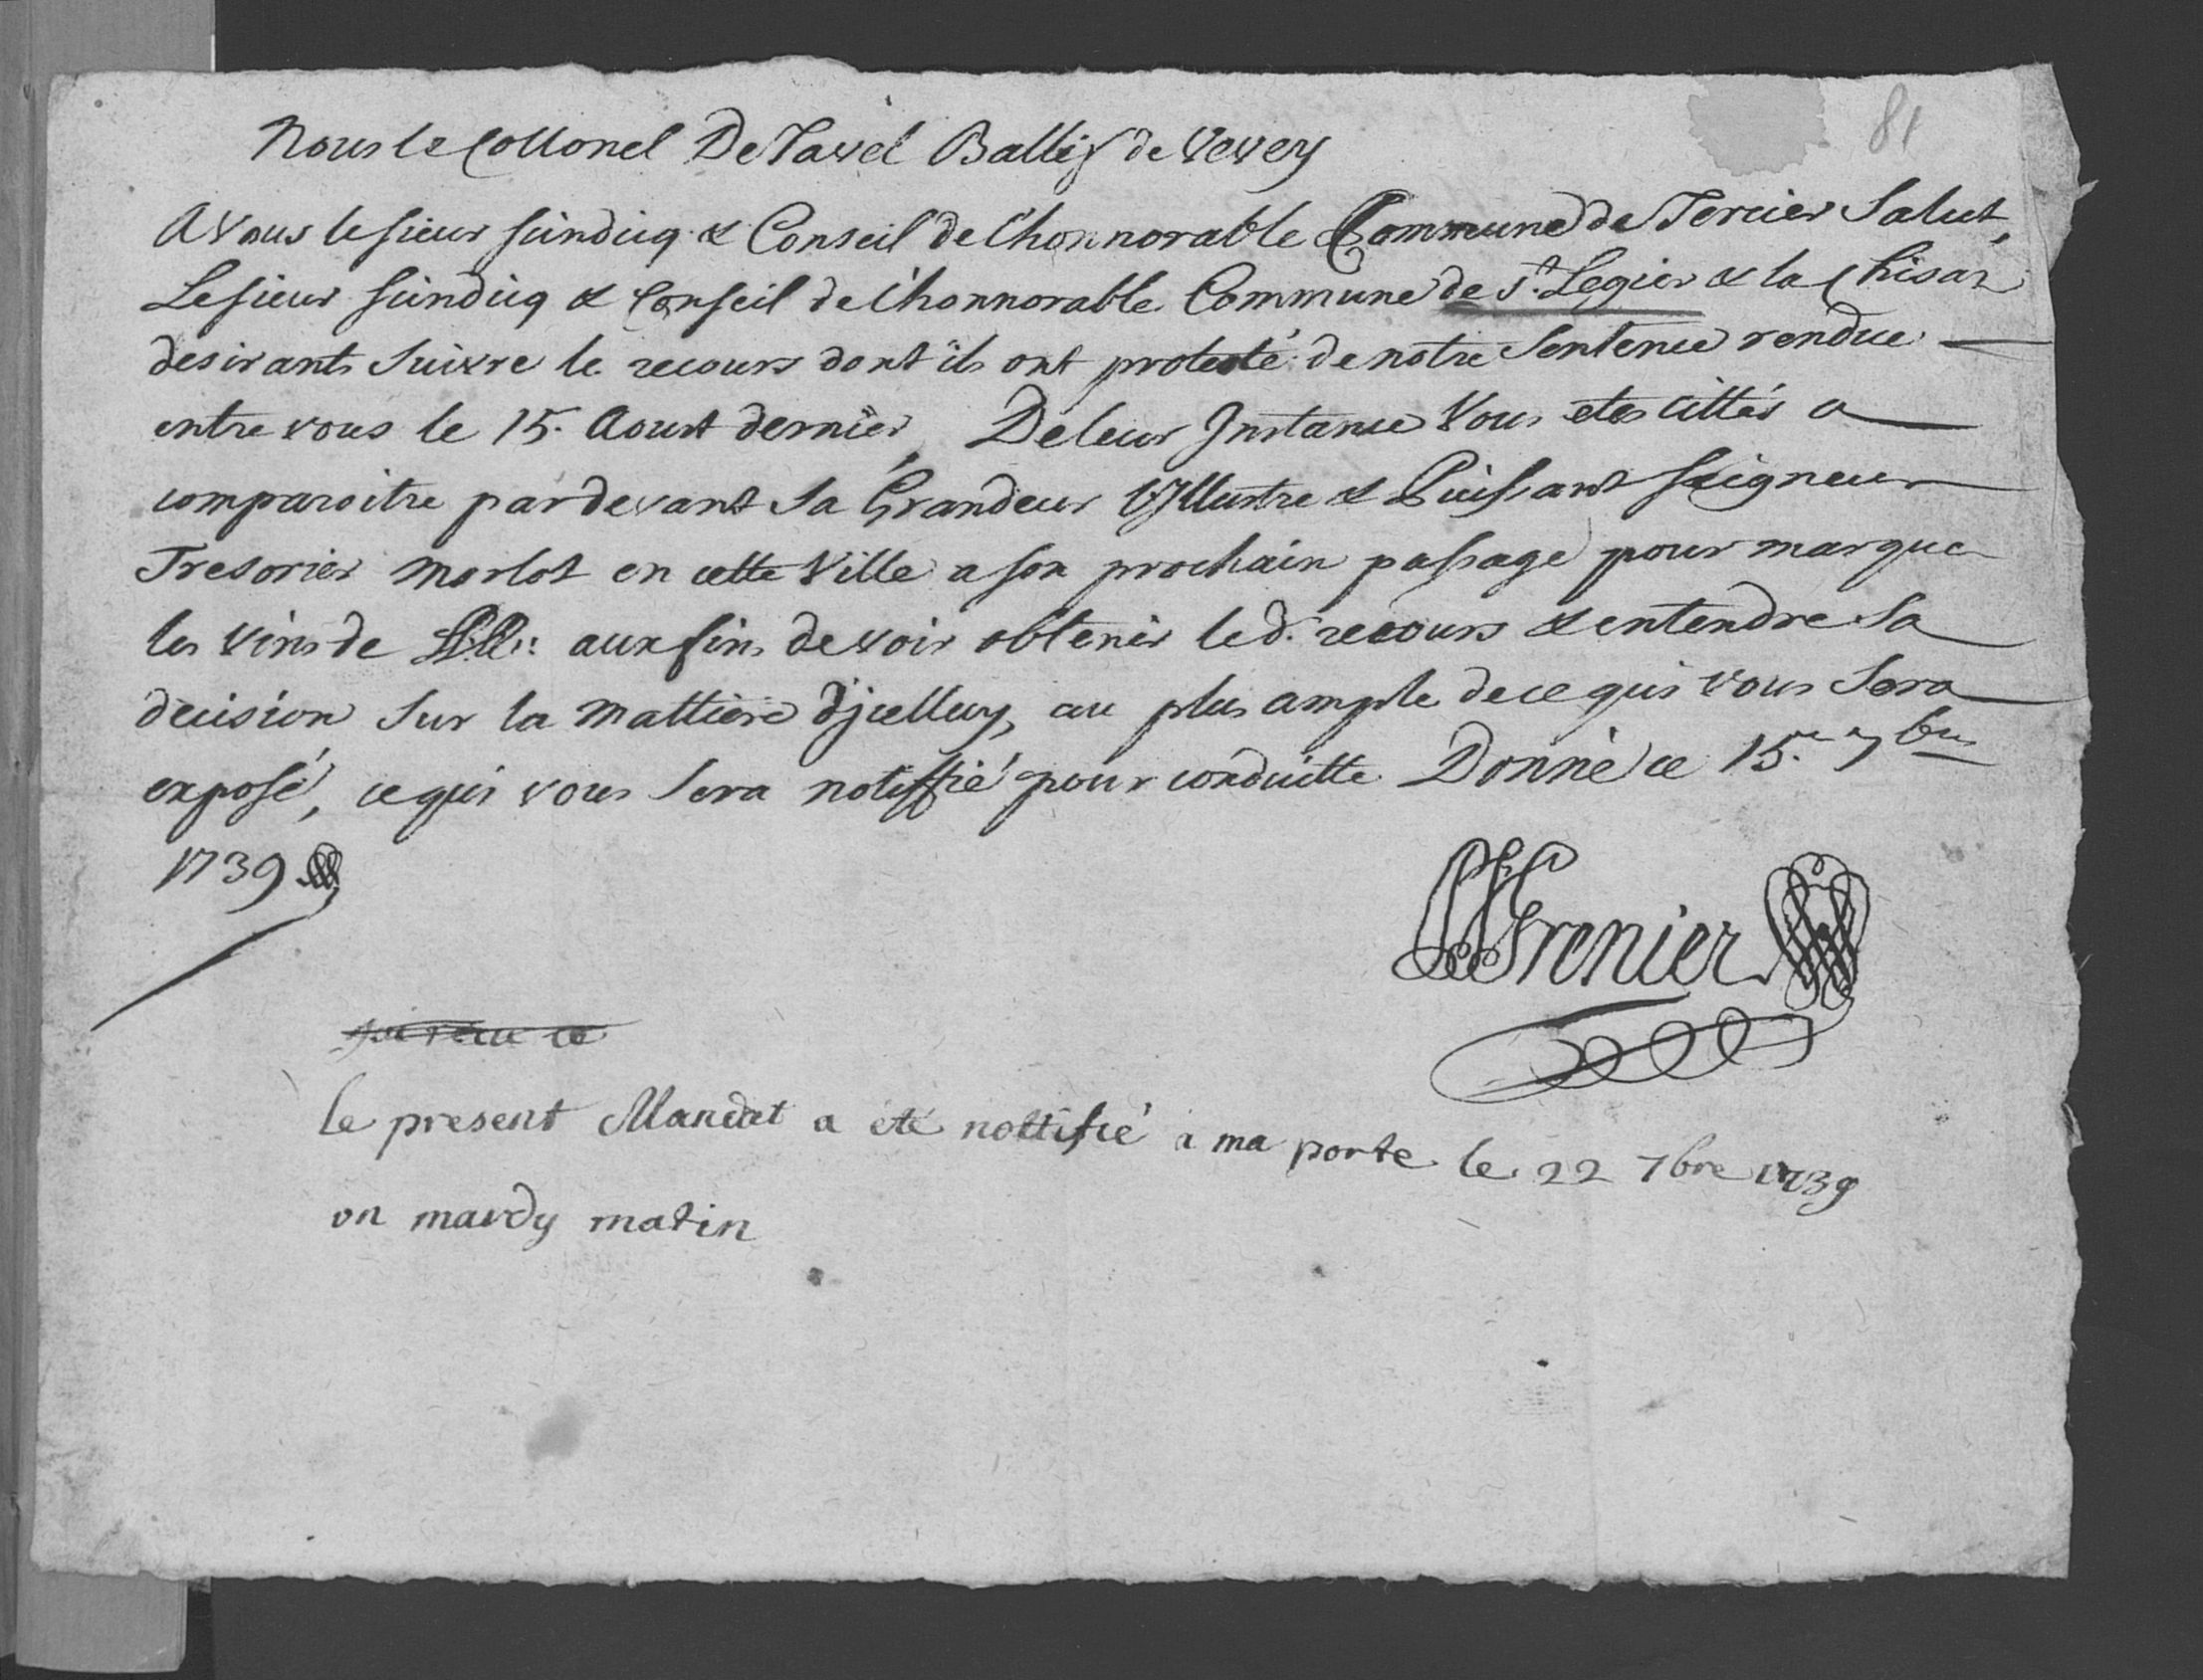 81
Nous le Collonel De Tavel Ballif de Vevey
A Vous le sieur sindicq & Conseil de l'honnorable Commune de Tercier Salut,
Le sieur sindicq & Conseil de l'honnorable Commune de St. Legier & la Chisaz
desirants suivre le recours dont ils ont protesté de notre Sentence rendue
entre vous le 15. Aoust dernier, De leur Instance Vous etes cittés a
comparoitre pardevant Sa Grandeur Illustre & Puissant Seigneur
Tresorier Morlot en cette Ville a son prochain passage pour marquer
les Vins de LL.EE: aux fins de voir obtenir led. recours & entendre Sa
decision Sur la Mattiere d'jcelluy, au plus ample de ce qui vous Sera
exposé, ce qui vous Sera notiffié pour conduitte Donné ce 15.e 7bre
1739
Grenier
le present Mandat a été nottifié a ma porte le 22 7bre 1739
on mardy matin